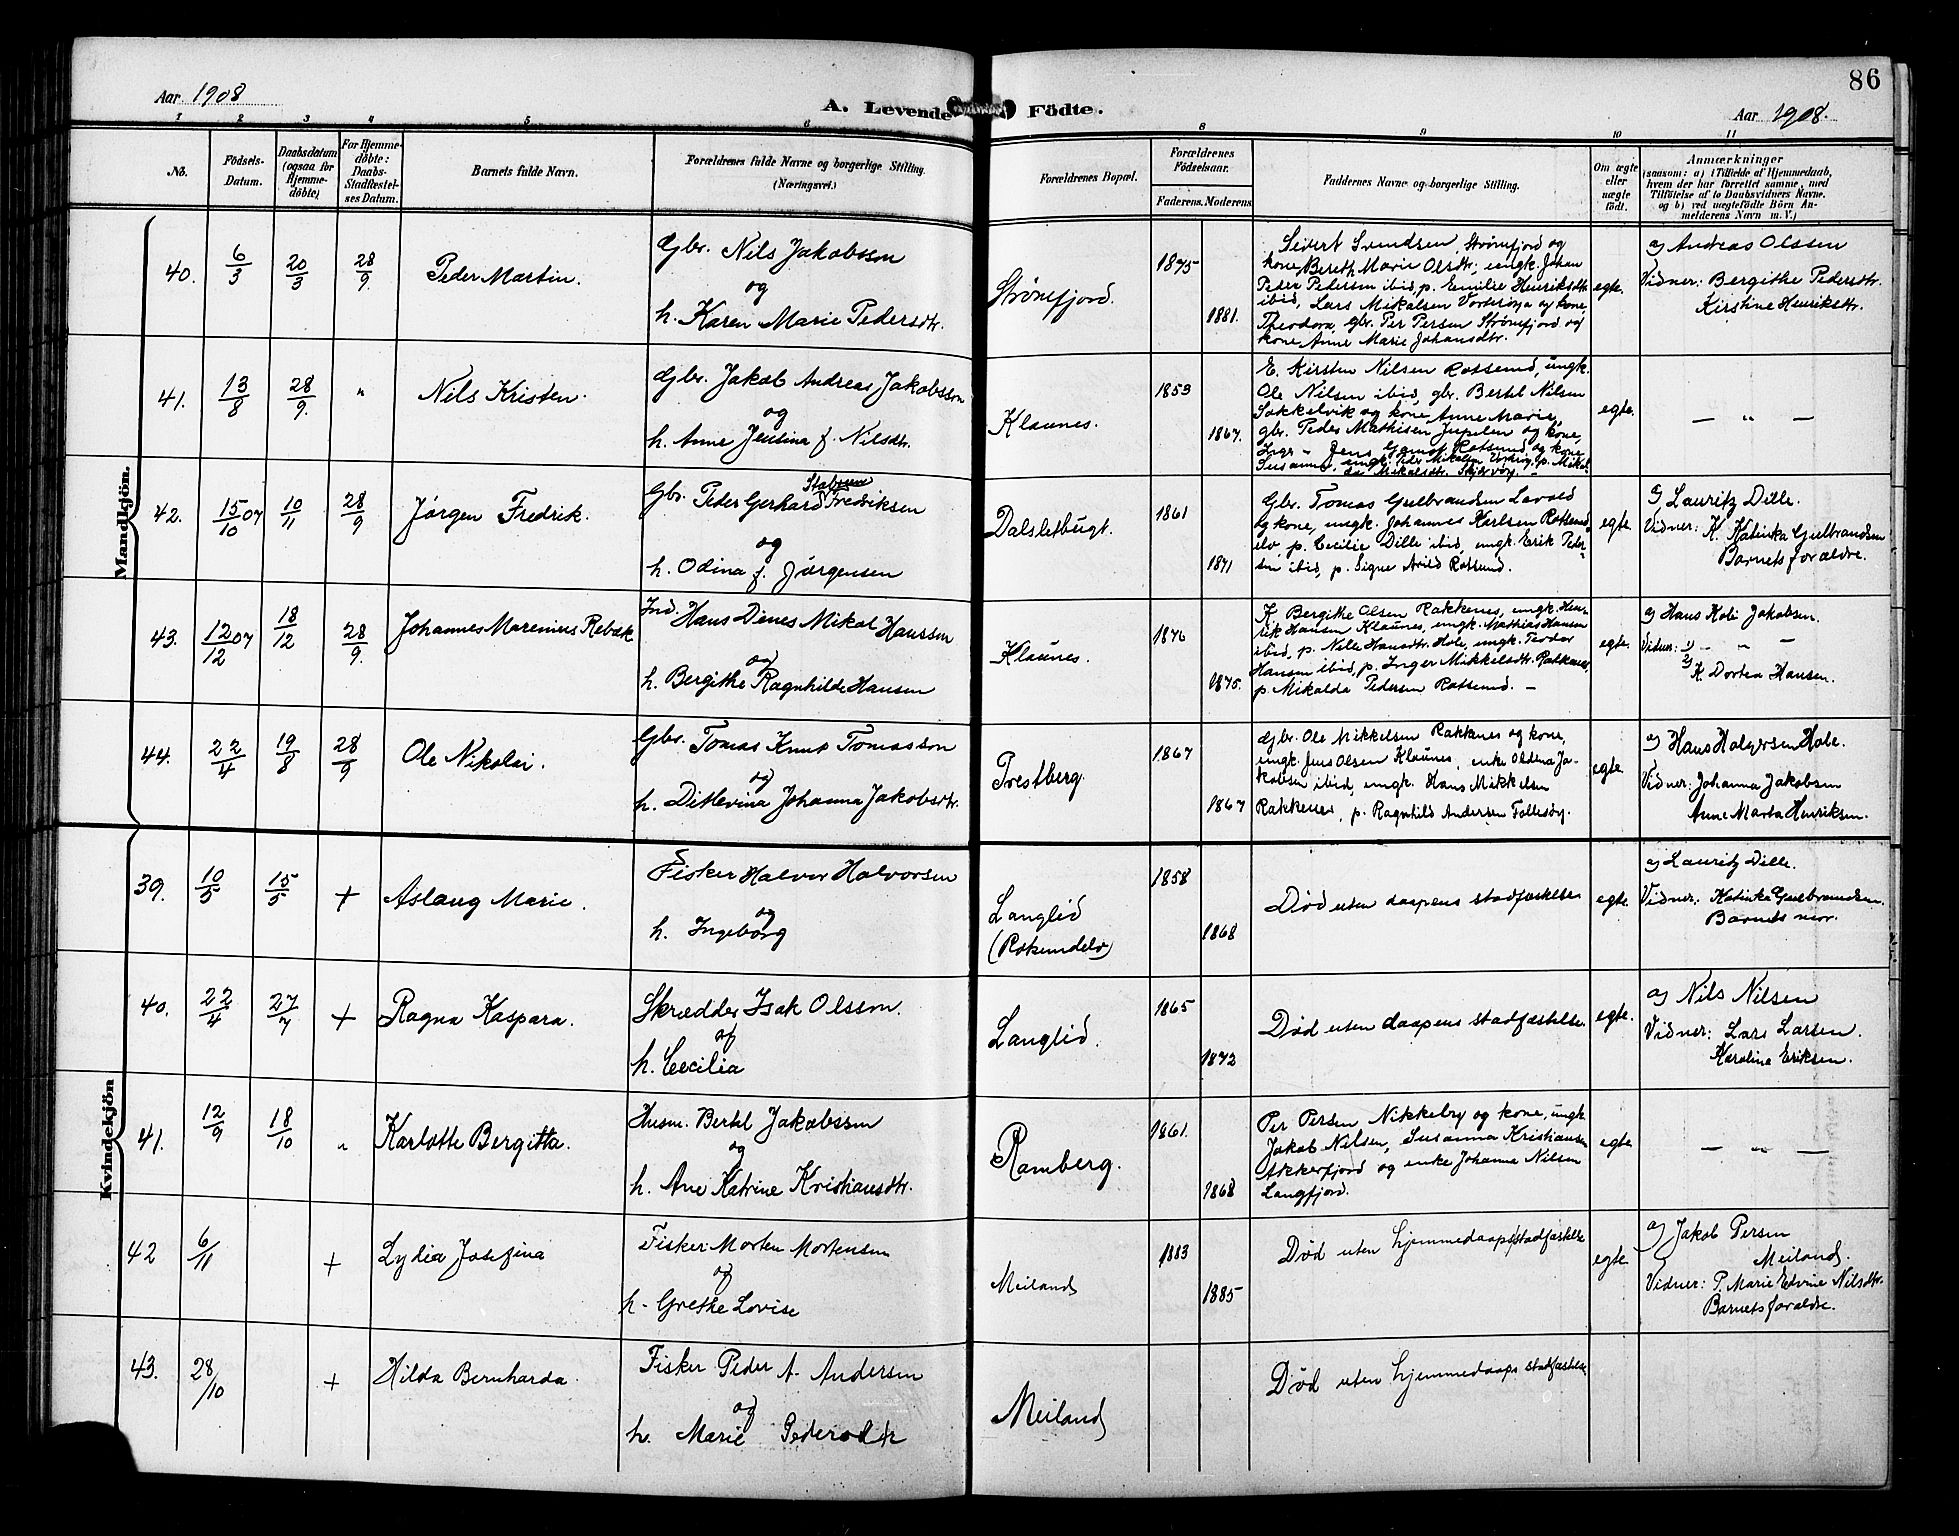 86
Aar 1908
A. Levende Födte.
Aar 1908.
1 2 3 4 5 6 8 9 10 11
No.
Födsels-
Datum.
Daabsdatum
(ogsaa for
Hjemme-
döbte)
For Hjemme-
döbte:
Daabs-
Stadfæstel-
ses Datum.
Barnets fulde Navn.
Forældrenes fulde Navne og borgerlige Stilling.
(Næringsvei.)
Forældrenes Bopæl.
Forældrenes
Födselsaar.
Faderens. Moderens
Faddernes Navne og borgerlige Stilling.
Om ægte
eller
uægte
födt.
Anmærkninger
(saasom: a) i Tilfælde af Hjemmedaab,
hvem der har forrettet samme, med
Tilföielse af to Daabsvidners Navne.
og b) ved uægtefödte Börn An-
melderens Navn m. V.)
Mandkjön.
40. 6/3 20/3 28/9 Peder Martin.
Gbr. Nils Jakobsson
og
h. Karen Marie Pedersdtr.
Strømfjord.
1875
1881.
Sivert Svendsen Strømfjord og
kone, Bereth Marie Olsdtr, ungk. Johan
Peder Pedersen ibid, p. Emilie Henriksdtr
ibid, Lars Mikalsen Vorterøya og kone,
Theodora, gbr. Per Persen Strømfjord og
kone, Anne Marie Johansdtr.
egte.
a) Andreas Olssen
Vidner: Bergithe Pedersdtr.
Kirstine Henriksdtr.
41. 13/8 28/9. " Nils Kristen.
Gbr. Jakob Andreas Jakobsson
og
h. Anne Jensina f. Nilsdtr.
Klaunes.
1853
1867.
E. Kirsten Nilsen Rotsund, ungk.
Ole Nilsen ibid, gbr. Bertel Nilsen
Sokkelvik og kone Anne Marie,
gbr. Peder Mathisen Jupelen og kone,
Susanna, ungk. Peder Mikalsen
egte.
— " —
42. 15/10 07 10/11 28/9 Jørgen Fredrik.
Gbr. Peder Gerhard Fredriksen
og
h. Odina f. Jørgensen
Dalsletbugt.
1861
1871
Gbr. Tomas Gulbrandsen Lovold
og kone, ungk. Johannes Karlsen Rotsund
elv, p. Cecilie Dille ibid, ungk. Erik Peder
sen ibid, p. Signe Arild Rotsund.
egte.
a) Lauritz Dille.
Vidner: K. Katinka Gulbrandsen
Barnets forældre.
43. 12/12 07 18/12 28/9. Johannes Marenius Rebæk
Ind. Hans Dines Mikal Hanssen
og
h. Bergithe Ragnhilde Hansen
Klaunes.
1876
1875.
K. Bergithe Olsen Rakkenes, ungk. Hen-
rik Hansen Klaunes, ungk. Mathias Hansen
ibid, p. Nille Hansdtr. Hole, ungk. Teodor
Hansen ibid, p. Inger Mikkelsdtr. Rakkenes,
p. Mikalda Pedersen Rotsund. —
egte.
a) Hans Kobi Jakobsen.
Vidner: 1) — " —
2) K. Dortea Hansen.
44. 22/4 19/8 28/9 Ole Nikolai.
Gbr. Tomas Knut Tomasson
og
h. Ditlevina Johanna Jakobsdtr.
Trestberg.
1867
1867
Gbr. Ole Mikkelsen Rakknes og kone,
ungk. Jens Olsen Klaunes, enke Oldena Ja-
kobsen ibid, ungk. Hans Mikkelsen
Rakkenes, p. Ragnhild Andersen Follesøy.
egte
a) Hans Holgersen Hole.
Vidner: Johanna Jakobsen
Anne Marta Henriksen.
Kvindekjön
39. 10/5 15/5 + Aslaug Marie.
Fisker Halvor Halvorsen
og
h. Ingeborg
Langlid
(Rotsundelv)
1858
1868
Død uten daapens stadfæstelse
egte.
a) Lauritz Dille.
Vidner: Katinka Gulbrandsen.
Barnets mor.
40. 22/4 27/7 + Ragna Kaspara.
Skrædder Isak Olsson.
og
h. Cecilia
Langlid.
1865
1872
Død uten daapens stadfæstelse.
egte.
a) Nils Nilsen
Vidner: Lars Larsen.
Karoline Eriksen.
41. 12/9 18/10 " Karlotte Bergitta.
Husm. Bertel Jakobssen
og
h. Ane Katrine Kristiansdtr.
Ramberg.
1861.
1868
Per Persen Nikkeby og kone, ungk.
Jakob Nilsen, Susanna Kristiansen
Akkerfjord og enke Johanna Nilsen
Langfjord.
egte.
— " —
42 6/11 + Lydia Josefina
Fisker Morten Mortensen
og
h. Grethe Lovise
Meiland
1883
1885
Død uten hjemmedaaps stadfæstelse
egte
a) Jakob Persen
Meiland.
Vidner: P. Marie Edvine Nilsdtr.
Barnets forældre.
43. 28/10 + Hilda Bernharda.
Fisker Peder A. Andersen
og
h. Marie Pedersdtr
Meiland
Død uten hjemmedaaps stadfæstelse